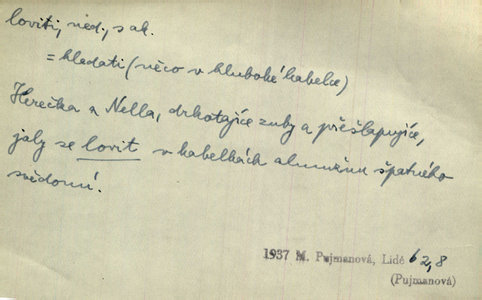 loviti, ned., s ak.
= hledati (něco v hluboké kabelce)
Herečka a Nella, drkotajíce zuby a přešlapujíce,
jaly se lovit v kabelkách almužnu špatného
svědomí.
1937 M. Pujmanová, Lidé 62,8
(Pujmanová)